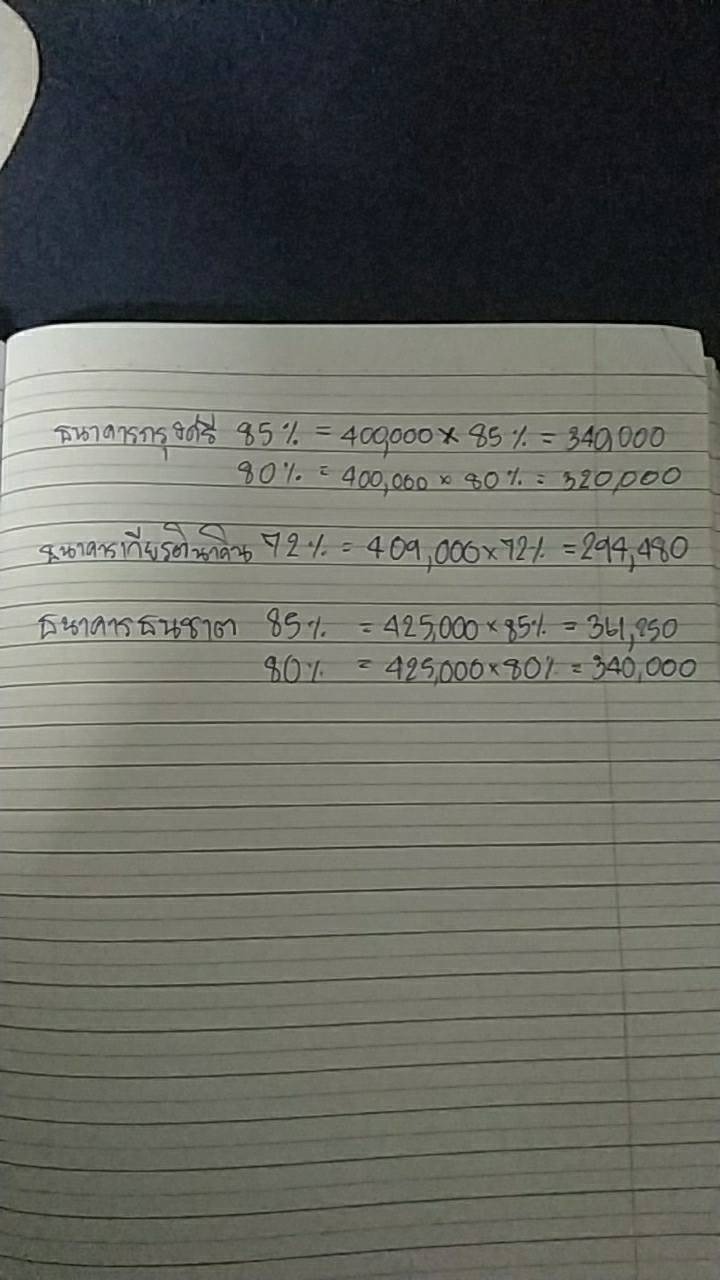 ธนาคารกรุงศรี 85% = 400,000 × 85% = 340,000
80% = 400,000 × 80% = 320,000
ธนาคารเกียรตินาคิน 72% = 409,000 × 72% = 294,480
ธนาคารธนชาต 85% = 425,000 × 85% = 361,250
80% = 425,000 × 80% = 340,000